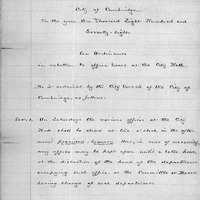 City of Cambridge
In the year One Thousand Eight Hundred and
Seventy-eight.
An Ordinance
in relation to office hours at the City Hall.
It is ordained by the City Council of the City of
Cambridge, as follows:
Sect. 1. On Saturdays the various offices at the City
Hall shall be closed at two o'clock in the after-
noon; Provided, however, that, in case of necessity,
any office may be kept open until a later hour,
at the discretion of the head of the department
occupying such office, or the Committee or Board
having charge of such department.